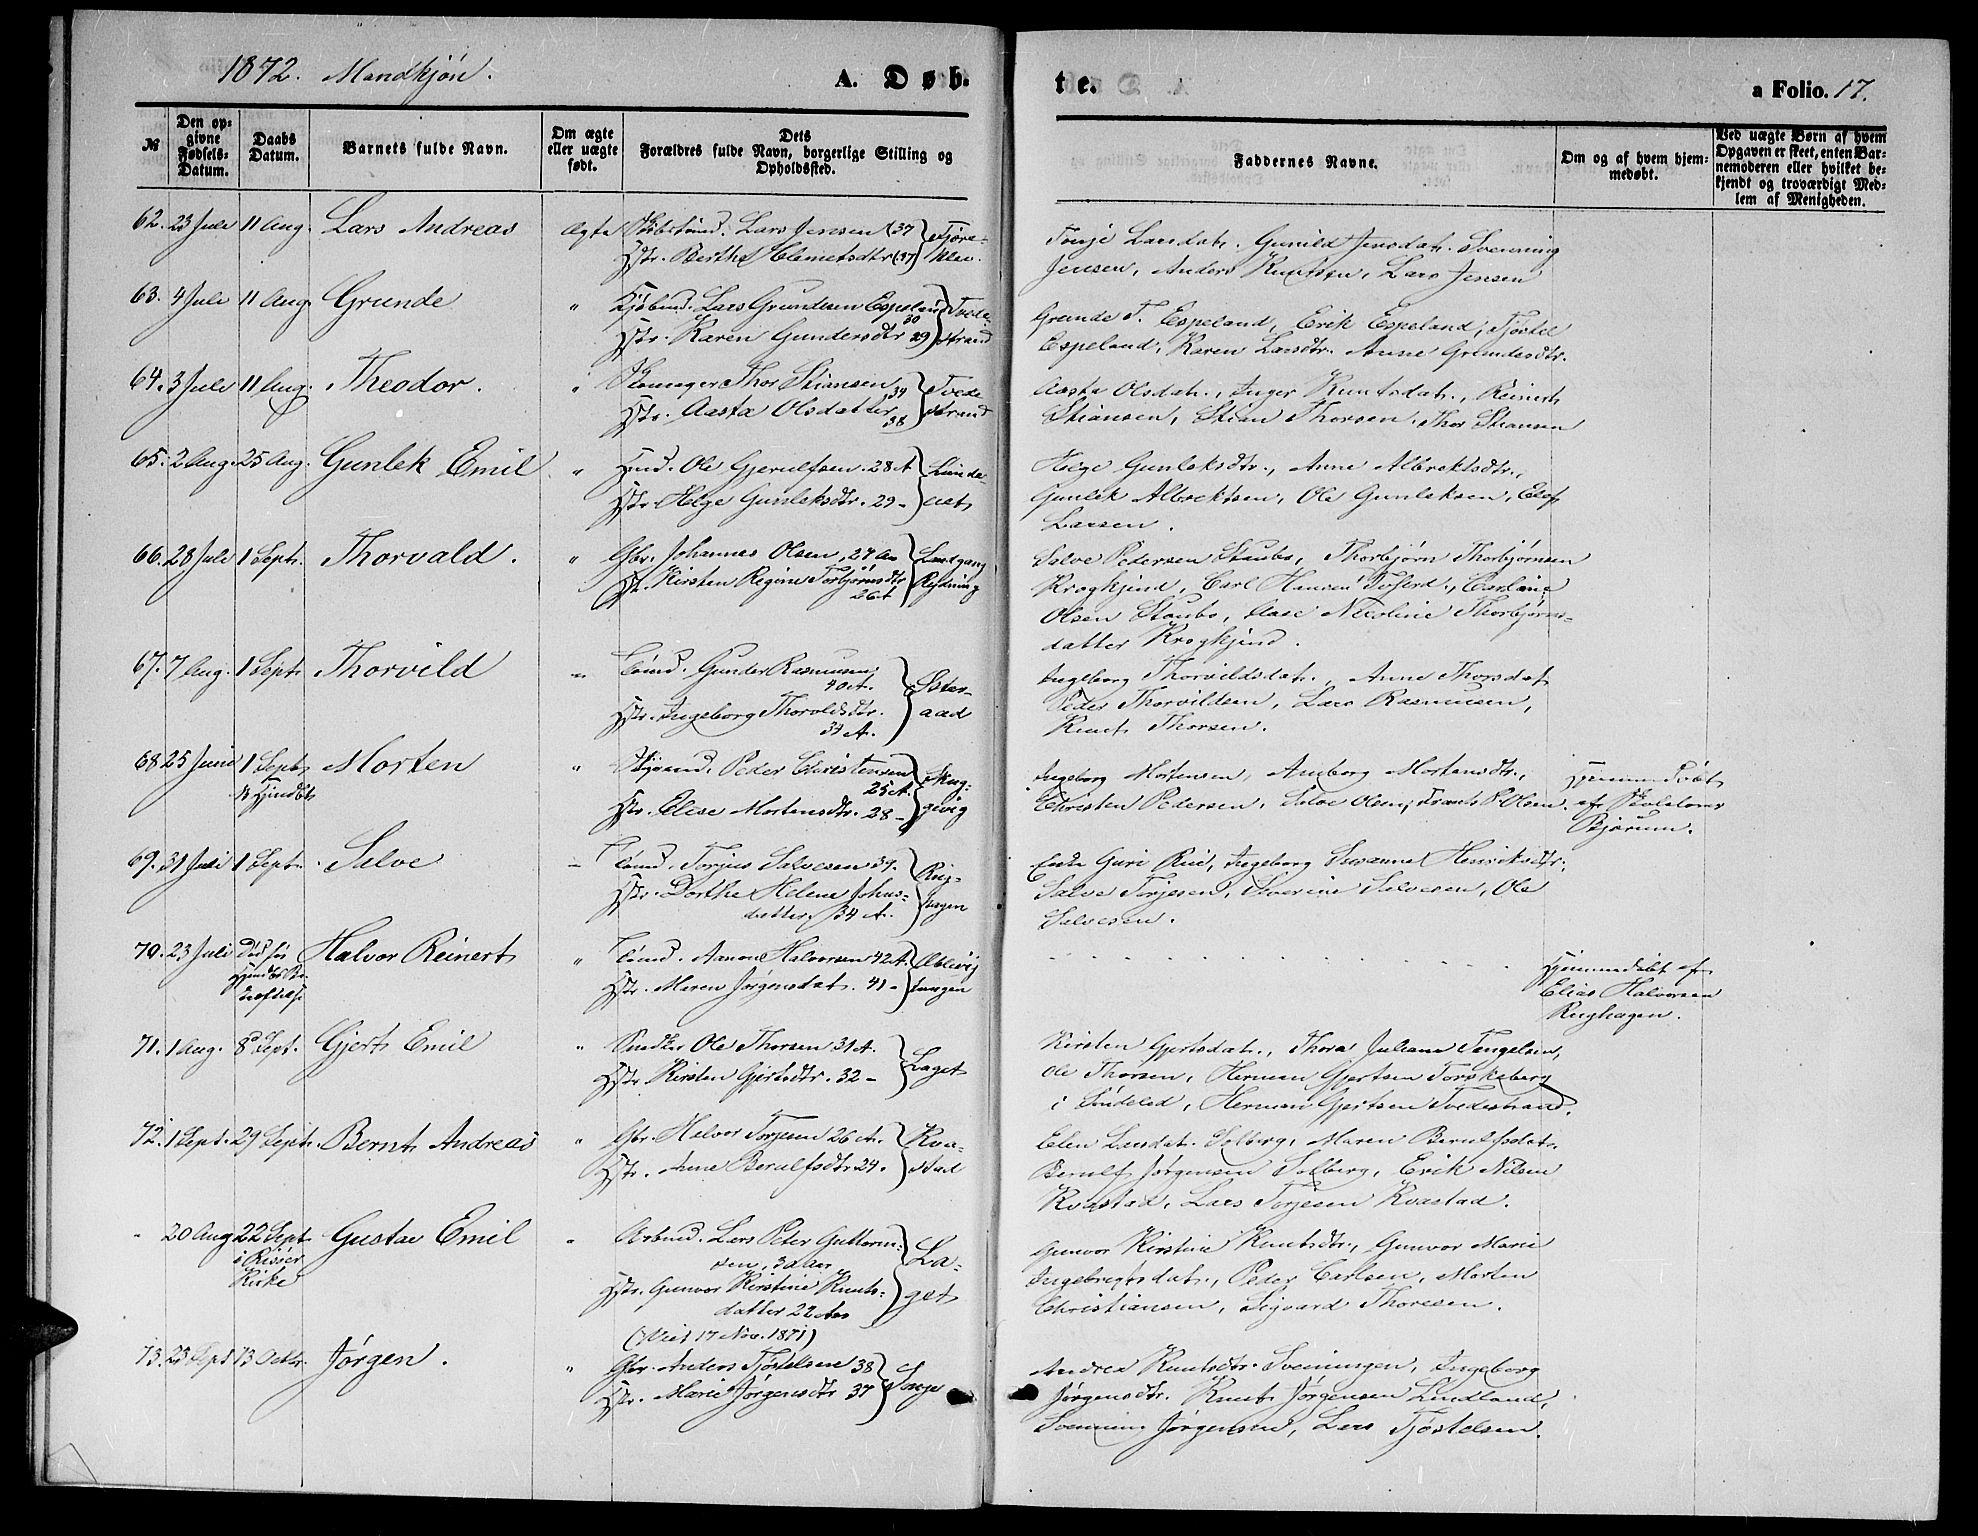 1872. Mandkjøn.
A. Døb-
te.
a Folio. 17.
№
Den op-
givne
Fødsels-
Datum.
Daabs
Datum.
Barnets fulde Navn.
Om ægte
eller uægte
født.
Dets
Forældres fulde Navn, borgerlige Stilling og
Opholdssted.
Faddernes Navne.
Om og af hvem hjem-
medøbt.
Ved uægte Børn af hvem
Opgaven er skeet, enten Bar-
nemoderen eller hvilket be-
kjendt og troværdigt Med-
lem af Menigheden.
62. 23 Juli 11 Aug. Lars Andreas Ægte Lars Jensen (37
Hstr. Berthe Clemetsdtr (37)
Lars Jensen
Tonje Larsdat. Gunild Jensdat. Svenning
Jensen, Anders Knutsen, Lars Jensen
63. 4 Juli 11 Aug. Grunde " Kjøbmd. Lars Grundesen Espeland 30 Tvede-
Hstr. Karen Gundersdtr 29) strand
Grunde T. Espeland, Erik Espeland, Tjøstel
Espeland, Karen Larsdtr. Anne Grundesdtr.
64. 3 Juli 11 Aug. Theodor. " Thor Stiansen 34 Tvede
Hstr. Aasta Olsdatter 38 strand
Aasta Olsdat., Inger Knutsdat., Reinert
Stiansen, Stian Thorsen, Thor Stiansen
65. 2 Aug. 25 Aug. Gunlek Emil " Ole Gjerulfsen. 28 A Lunde-
Hstr. Helge Gunleksdtr. 29 -
Helge Gunleksdtr., Anne Albrektsdtr.,
Gunlek Albrektsen, Ole Gunleksen, Elef
Larsen.
66. 28 Juli 1 Sept. Thorvald. " Gbr. Johannes Olsen, 27 Aar
Hst. Kirsten Regine Torbjørnsdtr
26 A
Salve Pedersen Staubø, Thorbjørn Thorbjørnsen
Krogkjend, Carl Hansen
Olsen Staubø, Nicoline Thorbjørns-
datter Krogkjend.
67. 7 Aug. 1 Sept. Thorvild " Gunder Rasmussen
40 A.
Hstr. Ingeborg Thorvoldsdtr.
34 A.
Ingeborg Thorvildsdat., Anne Thorsdat
Peder Thorvildsen, Lars Rasmussen,
Knut Thorsen.
68 25 Juni 1 Sept. Morten " Peder Christensen
25 A.
Hstr. Elise Mortensdtr. 28 -
Ingeborg Mortensen, Anborg Mortensdtr.,
Christen Pedersen, Salve Olsen, Frants P. Olsen.
Hjemmedøbt
af Skolelærer
Bjørum.
69. 31 Juli 1 Sept. Salve – Torjus Salvesen 39.
Hstr. Dorthe Helene Johns-
datter, 34 A.
Guri Ingeborg Susanne Henriksdtr.
Salve Torjesen, Severine Salvesen, Ole
Salvesen.
70. 23 Juli Død før Halvor Reinert " Aanon Halvorsen 42 A.
Hstr. Maren Jørgensdat. 41 -
Hjemmedøbt af
Elias Halvorsen
71. 1 Aug. 8 Sept. Gjert Emil " Ole Thorsen 31 A.
Hstr. Kirsten Gjertsdtr. 32 - Laget
Kirsten Gjertsdat., Thora Juliane Tengelsen,
Ole Thorsen, Herman Gjertsen Torskeberg
i Søndeled, Herman Gjertsen Tvedestrand.
72. 1 Sept. 29 Sept. Bernt Andreas " Gbr. Halvor Torjesen 26 A. Kva-
Hstr. Anne Berulfsdtr 24. stad
Elen Larsdat. Solberg, Maren Berulfsdat.
Berulf Jørgensen Solberg, Erik Nilsen
Kvastad, Lars Torjesen Kvastad.
" 20 Aug 22 Sept. Gustav Emil " Lars Peter Guttorm-
i Risøer
Kirke
sen, 30 Aar La-
Hstr. Gunvor Kirstine Knuts-
datter 22 Aar get
(Viet 17 Nov. 1871)
Gunvor Kirstine Knutsdtr., Gunvor Marie
Ingebrigtsdat., Peder Carlsen, Morten
Christiansen, Sigvard Thoresen.
73. 23 Sept 13 Octbr. Jørgen. " Gbr. Anders Tjøstelsen 38
Hstr. Marie Jørgensdtr 37 Songe
Andrea Knutsdtr. Sveningen, Ingeborg
Jørgensdtr. Knut Jørgensen Lindland,
Svenning Jørgensen, Lars Tjøstelsen.